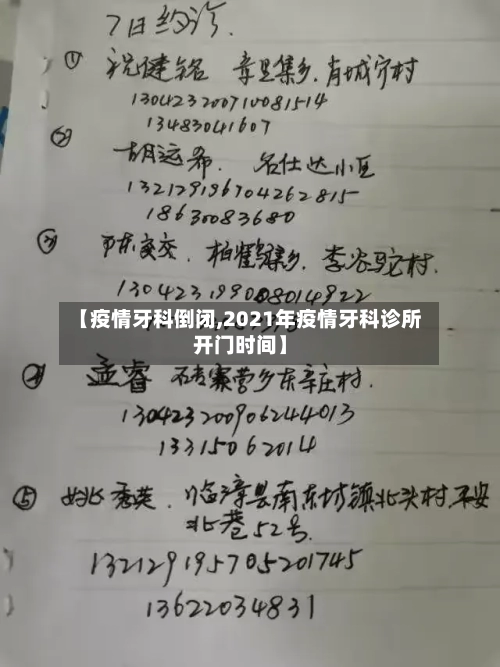 7日约诊.
① 祝健铭 章里集乡.肖城守村
130423200710081514
13483041607
② 胡运希. 名仕达小区
132129196704262815
18630083680
③ 柏鹤集乡.
【疫情牙科倒闭,2021年疫情牙科诊所
开门时间】
④ 孟睿 寨营乡东辛庄村.
130423200906244013
13315062014
⑤ 姚秀英. 临漳县南东坊镇北头村.平安
北巷52号.
132129195705201745
13622034831